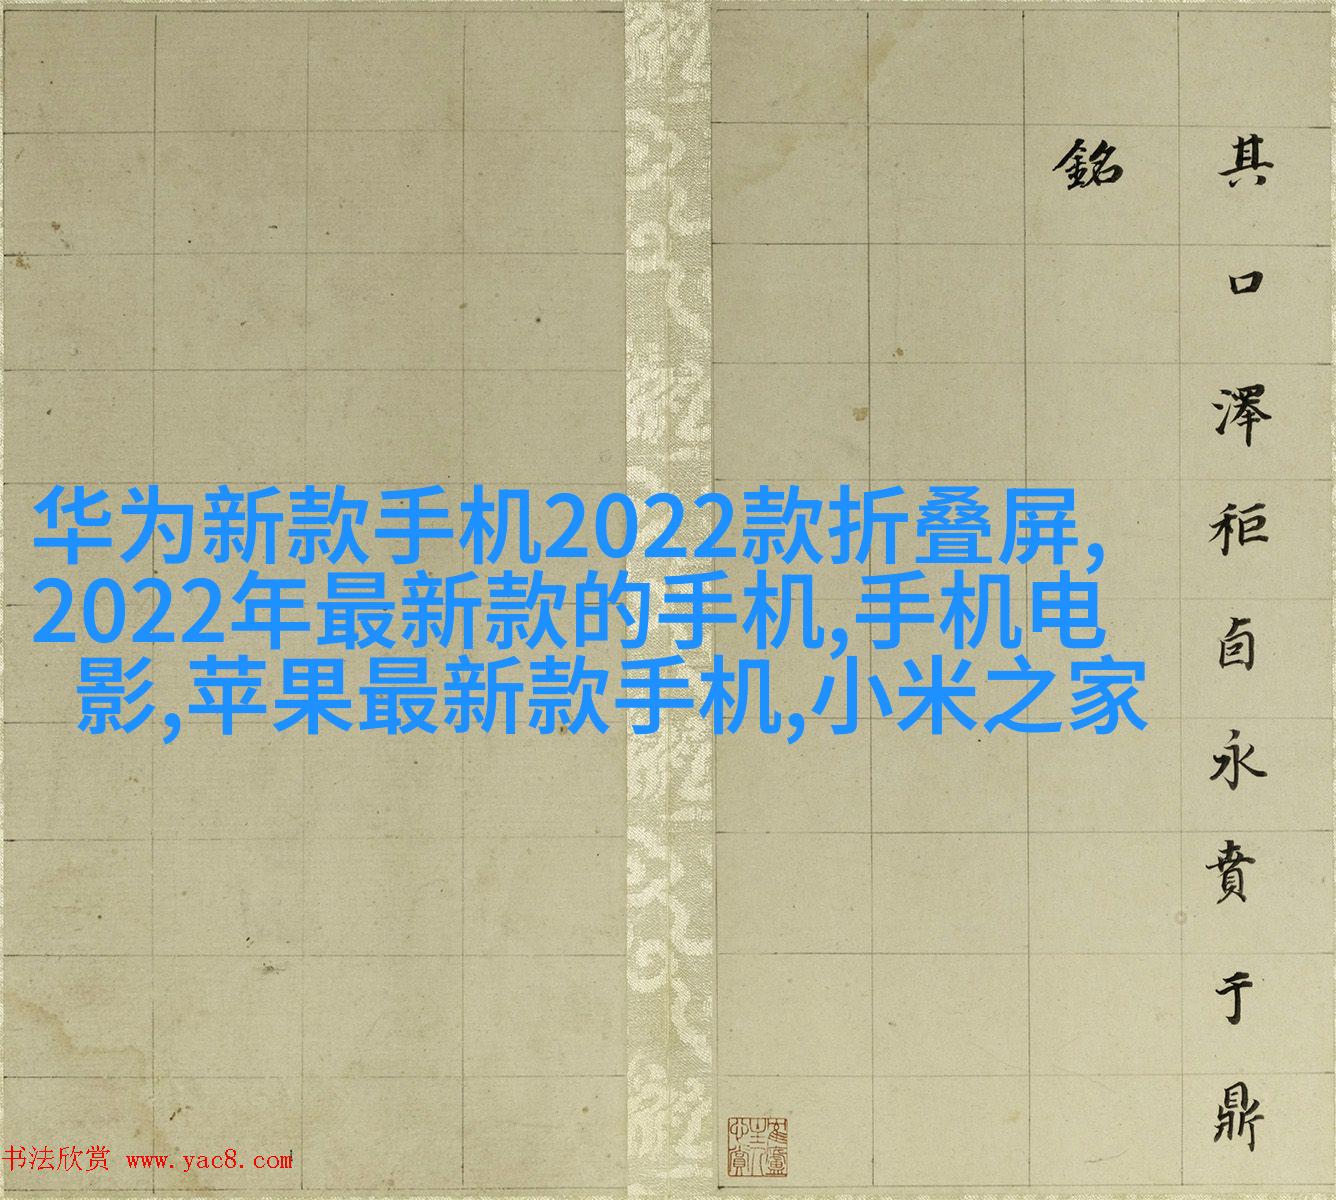 其口澤秬卣永賁于鼎
銘
华为新款手机2022款折叠屏,
2022年最新款的手机,手机电
影,苹果最新款手机,小米之家
书法欣赏 www.yac8.com